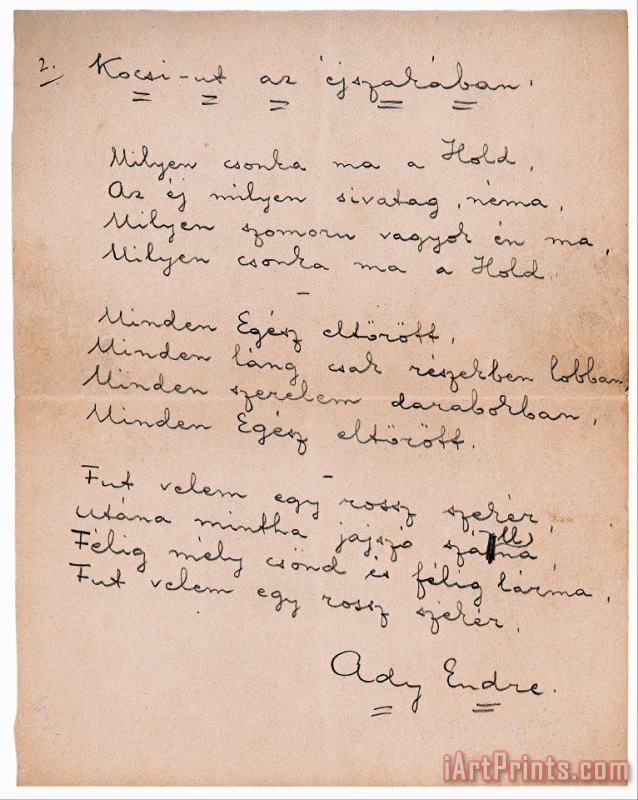 2. Kocsi-ut az éjszakában.
Milyen csonka ma a Hold,
Az éj milyen sivatag, néma,
Milyen szomoru vagyok én ma,
Milyen csonka ma a Hold.
–
Minden Egész eltörött,
Minden láng csak részekben lobban,
Minden szerelem darabokban,
Minden Egész eltörött.
–
Fut velem egy rossz szekér,
Utána mintha jajszó szállna,
Félig mély csönd és félig lárma,
Fut velem egy rossz szekér.
Ady Endre.
iArtPrints.com